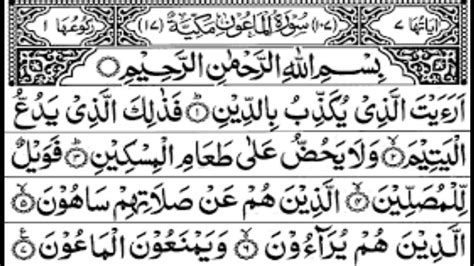 اٰيَاتُهَا ٧ (١٠٧) سُوْرَةُ الْمَاعُوْنَ مَكِّيَّةٌ (١٧) رُكُوْعُهَا ١
بِسْمِ اللّٰهِ الرَّحْمٰنِ الرَّحِيْمِ
اَرَءَيْتَ الَّذِىْ يُكَذِّبُ بِالدِّيْنِ ۝١ فَذٰلِكَ الَّذِىْ يَدُعُّ
الْيَتِيْمَ ۝٢ وَلَا يَحُضُّ عَلٰى طَعَامِ الْمِسْكِيْنِ ۝٣ فَوَيْلٌ
لِّلْمُصَلِّيْنَ ۝٤ الَّذِيْنَ هُمْ عَنْ صَلَاتِهِمْ سَاهُوْنَ ۝٥
الَّذِيْنَ هُمْ يُرَآءُوْنَ ۝٦ وَيَمْنَعُوْنَ الْمَاعُوْنَ ۝٧